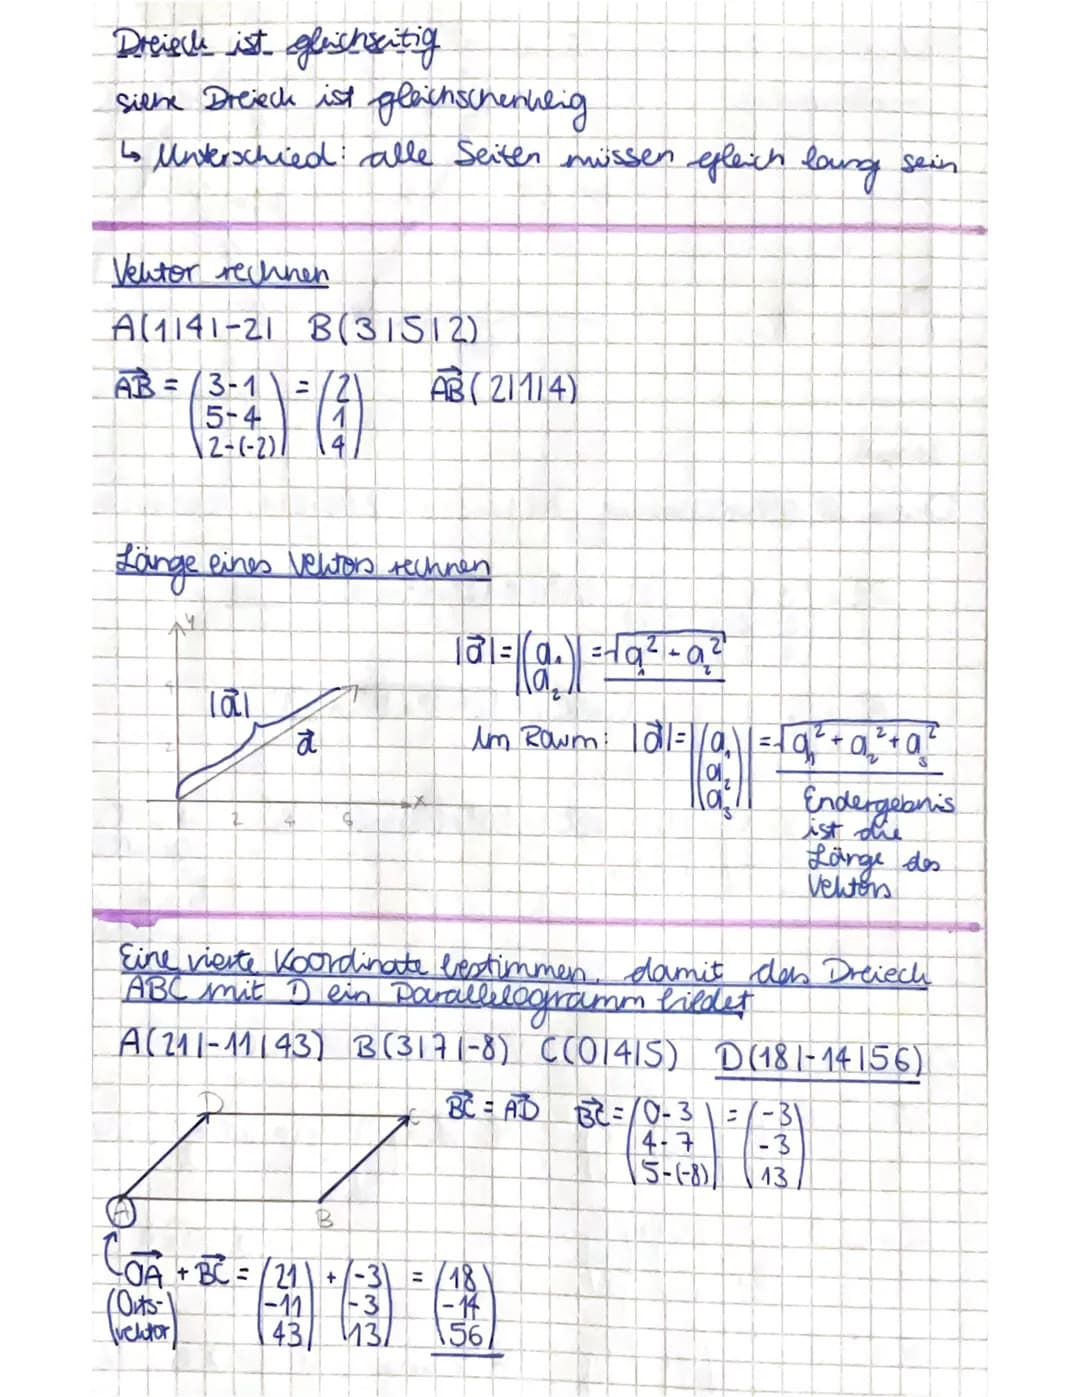 Dreieck ist gleichseitig
siehe Dreieck ist gleichschenkelig
↳ Unterschied: alle Seiten müssen gleich lang sein
Vektor rechnen
A(1|4|-2| B(3|5|2)
AB→ = (3-1 5-4 2-(-2)) = (2 1 4) AB→ (2|1|4)
Länge eines Vektors rechnen
y
|a→| = |(a₁ a₂)| = √a₁² - a₂²
4
|a→|
a→
Im Raum: |a→| = |(a₁ a₂ a₃)| = √a₁² + a₂² + a₃²
2
x
2 4 6
Endergebnis
ist die
Länge des
Vektors
Eine vierte Koordinate bestimmen, damit das Dreieck
ABC mit D ein Parallelogramm bildet
A(21|-11|43) B(3|7|-8) C(0|4|5) D(18|-14|56)
D C
BC→ = AD→ BC→ = (0-3 4-7 5-(-8)) = (-3 -3 13)
A B
OA→ + BC→ = (21 -11 43) + (-3 -3 13) = (18 -14 56)
(Orts-
vektor)